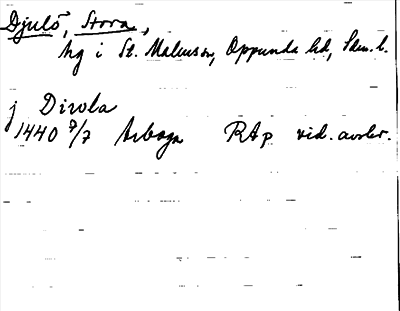 Djulö, Stora,
hg i St. Malmson, Oppunda hd, Sdm. l.
j Diwla
1440 7/7 Arboga RAp vid. avskr.